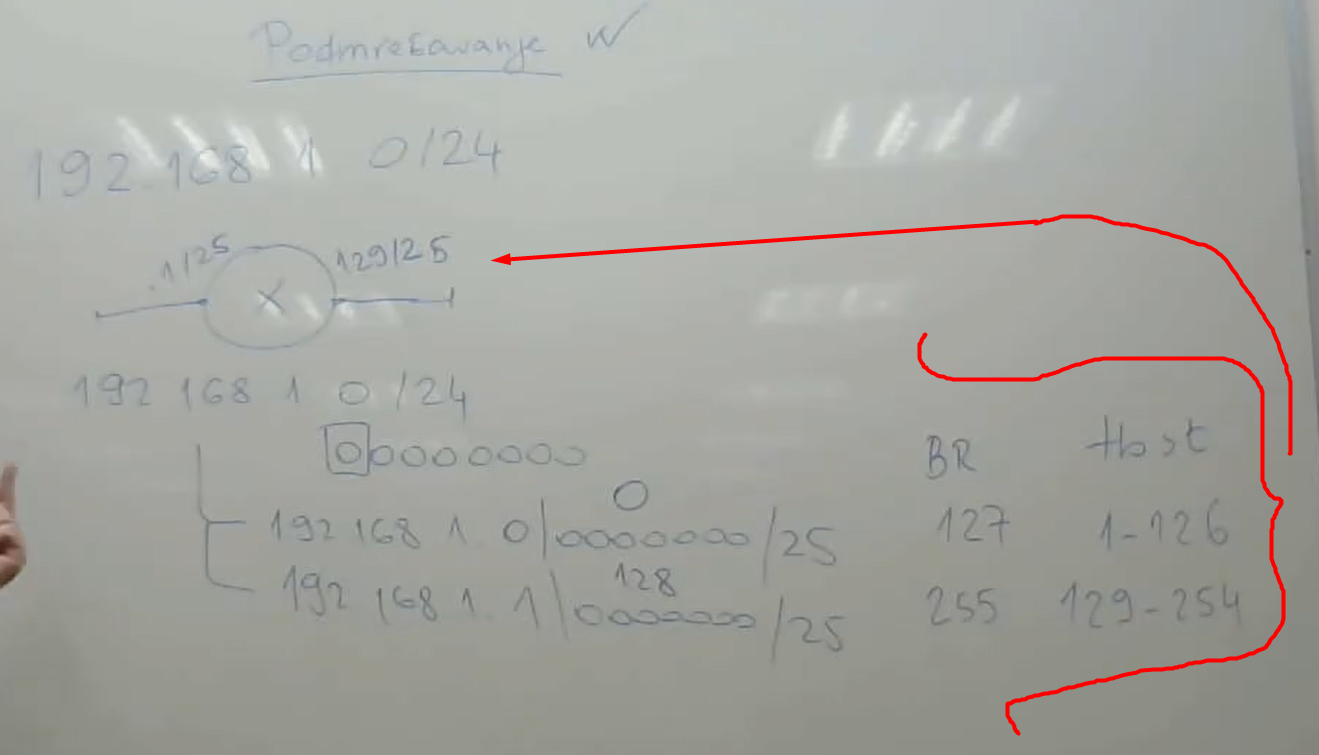 Podmrežavanje
192.168 1 0/24
.1/25 129/25
X
192 168 1 0 /24
00000000
BR Host
0
192 168 1. 0|0000000/25 127 1-126
128
192 168 1. 1|0000000/25 255 129-254